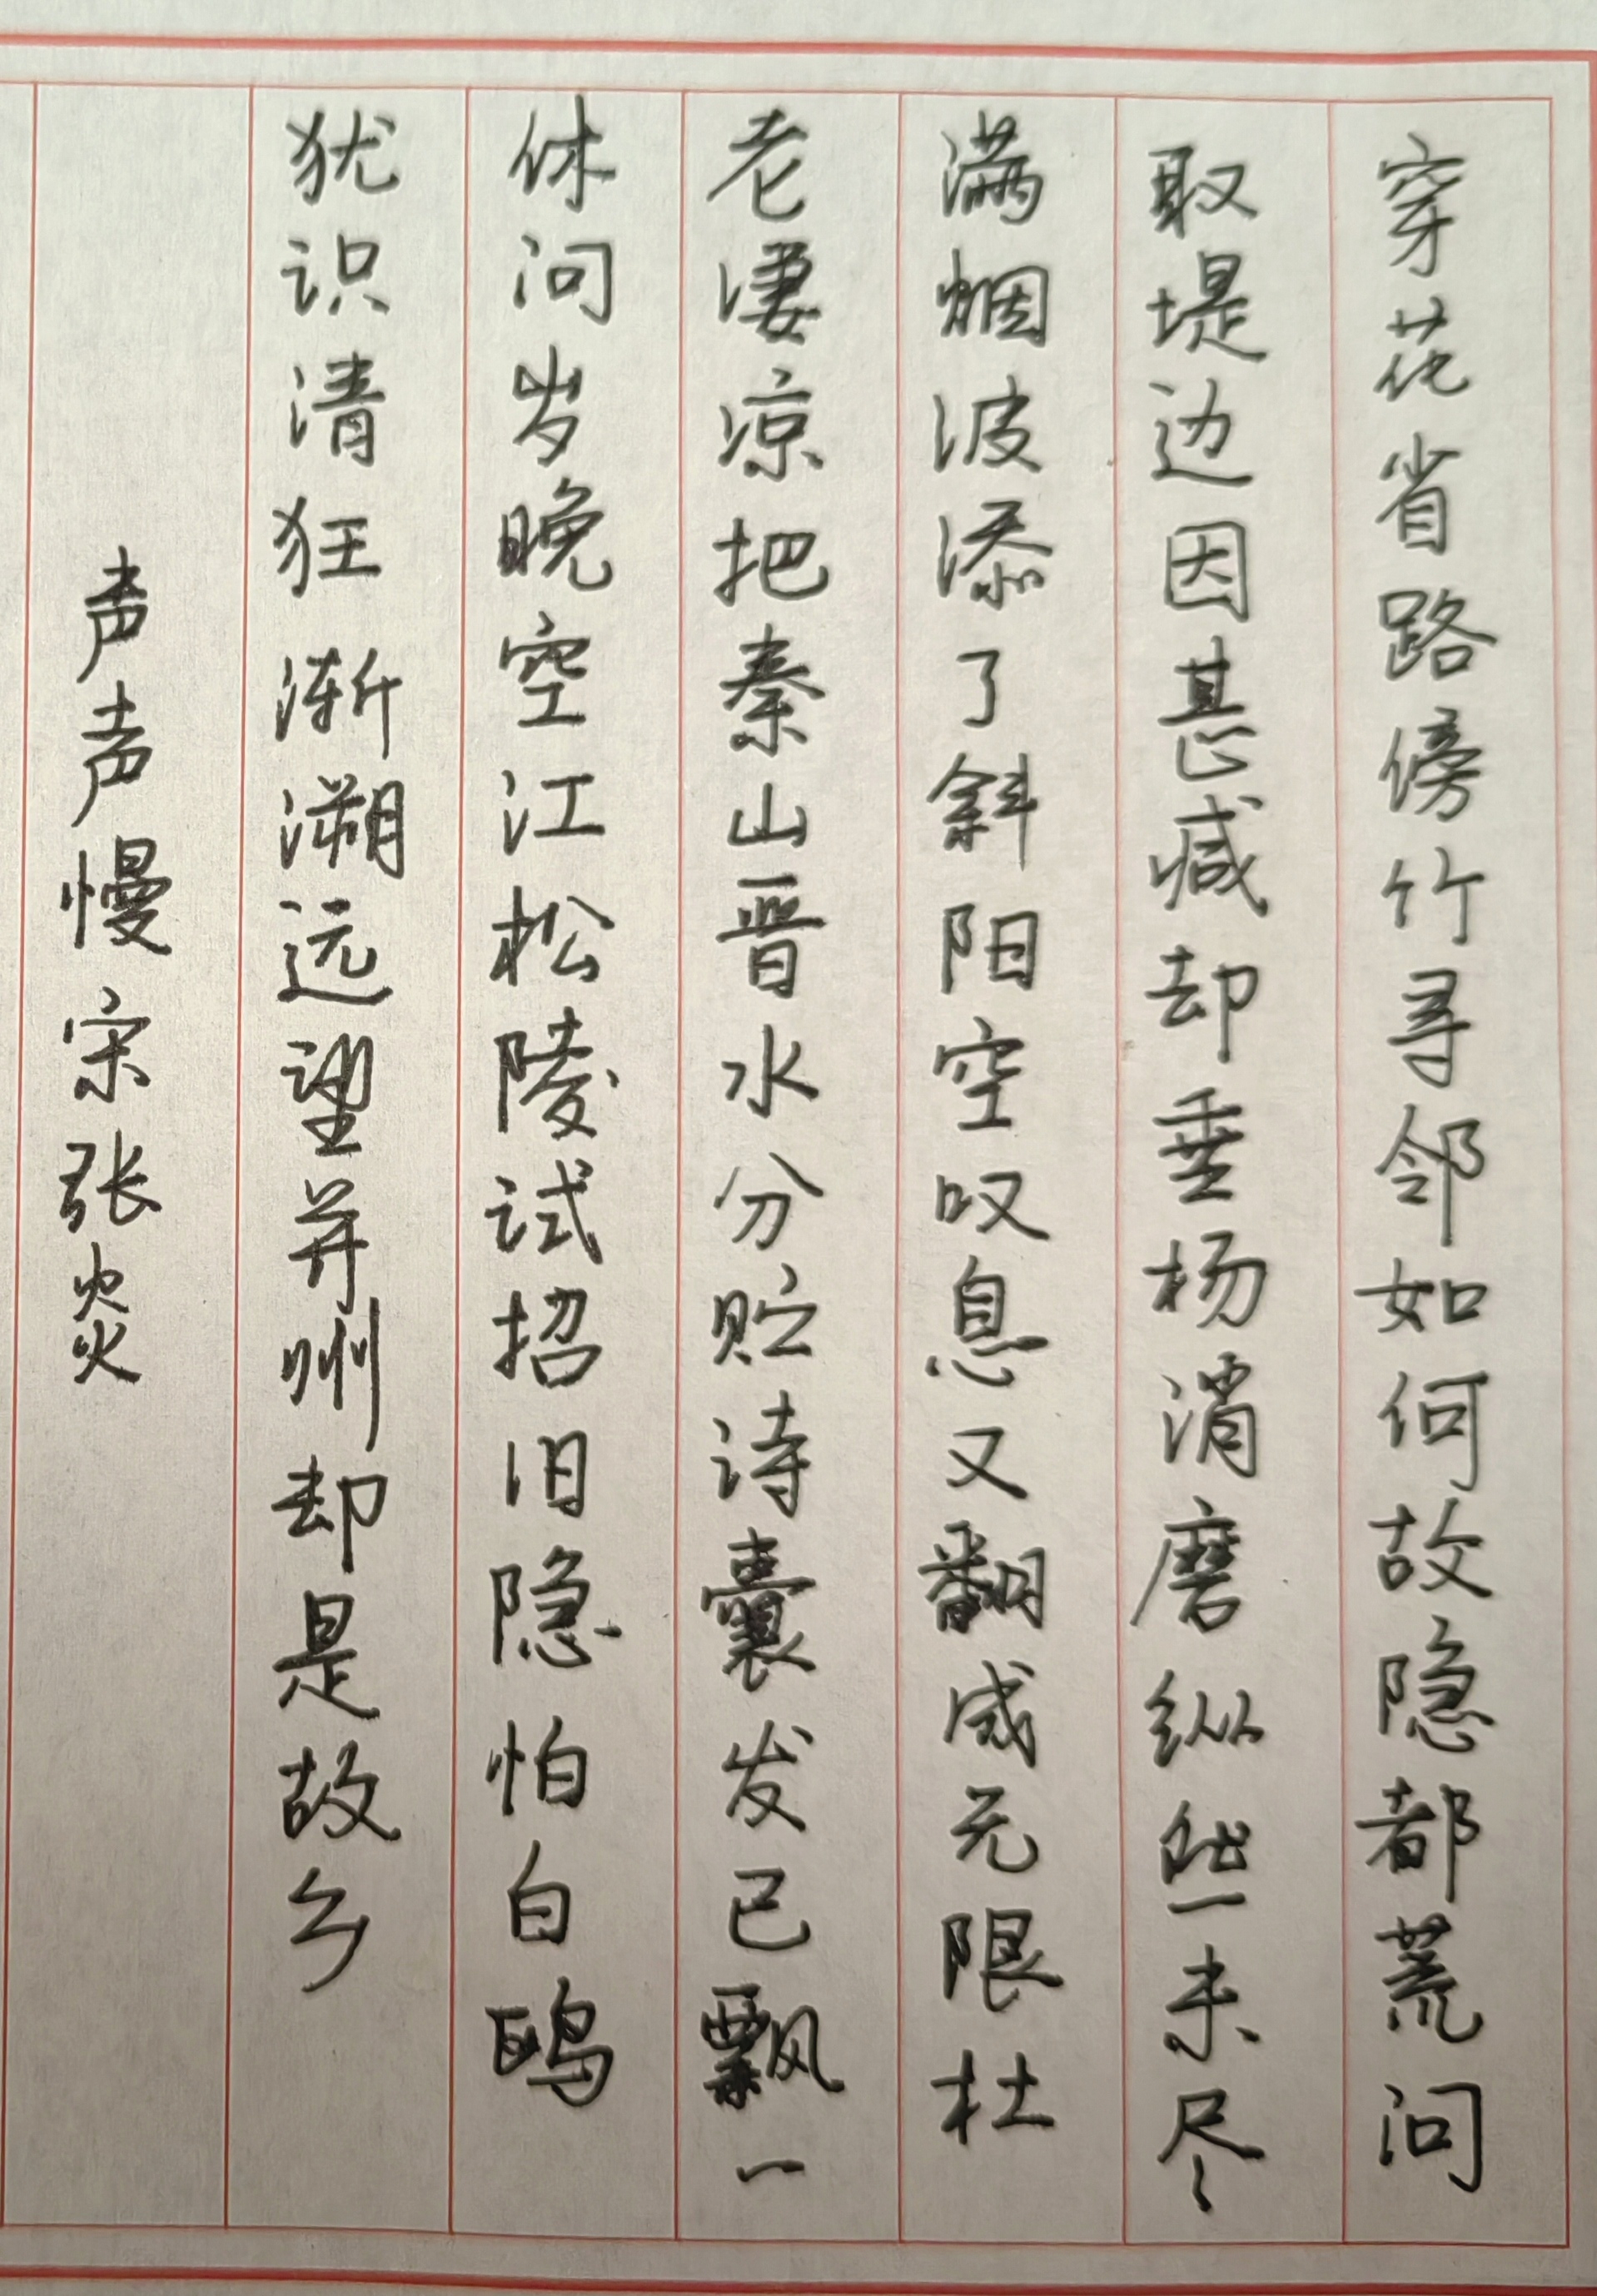 穿花省路傍竹寻邻如何故隐都荒问
取堤边因甚减却垂杨消磨纵然未尽
满烟波添了斜阳空叹息又翻成无限杜
老凄凉把秦山晋水分贮诗囊发已飘一
休问岁晚空江松陵试招旧隐怕白鸥
犹识清狂渐溯远望并州却是故乡
声声慢宋张炎